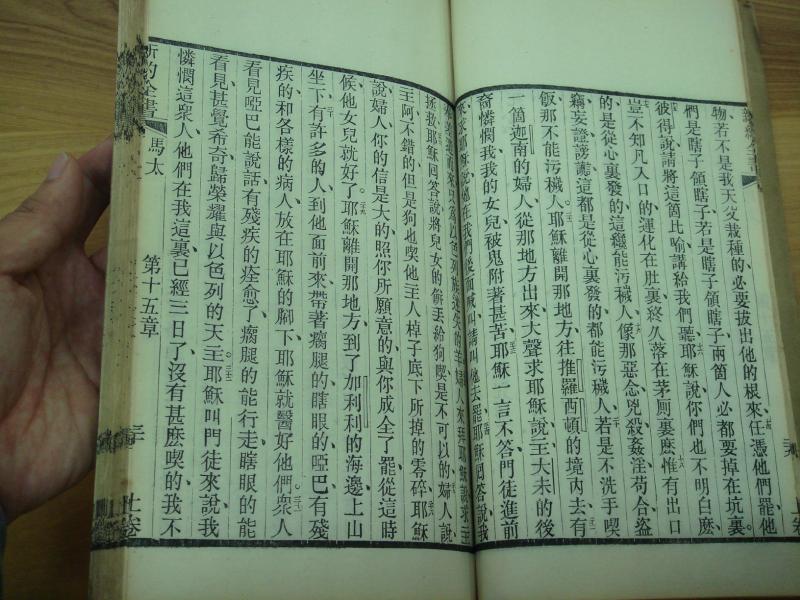 物若不是我天父栽種的必要拔出他的根來任憑他們罷他
們是瞎子領瞎子若是瞎子領瞎子兩箇人必都要掉在坑裏
彼得說請將這箇比喻講給我們聽耶穌說你們也不明白麽
豈不知凡入口的運化在肚裏終久落在茅厠裏麽惟有出口
的是從心裏發的這纔能污穢人像那惡念兇殺姦淫苟合盜
竊妄證謗讟這都是從心裏發的都能污穢人若是不洗手喫
飯那不能污穢人耶穌離開那地方往推羅西頓的境內去有
一箇迦南的婦人從那地方出來大聲求耶穌說主大未的後
裔憐憫我我的女兒被鬼附著甚苦耶穌一言不答門徒進前
來求耶穌說他在我們後面喊叫請叫他去罷耶穌回答說我
以色列族迷失的羊婦人來拜耶穌說求主
拯救耶穌回答說將兒女的餅丟給狗喫是不可以的婦人說
主阿不錯的但是狗也喫他主人棹子底下所掉的零碎耶穌
說婦人你的信是大的照你所願意的與你成全了罷從這時
候他女兒就好了耶穌離開那地方到了加利利的海邊上山
坐下有許多的人到他面前來帶著瘸腿的瞎眼的啞巴有殘
疾的和各樣的病人放在耶穌的腳下耶穌就醫好他們衆人
看見啞巴能說話有殘疾的痊愈了瘸腿的能行走瞎眼的能
看見甚覺希奇歸榮耀與以色列的天主耶穌叫門徒來說我
憐憫這衆人他們在我這裏已經三日了沒有甚麽喫的我不
新約全書 馬太 第十五章 上卷